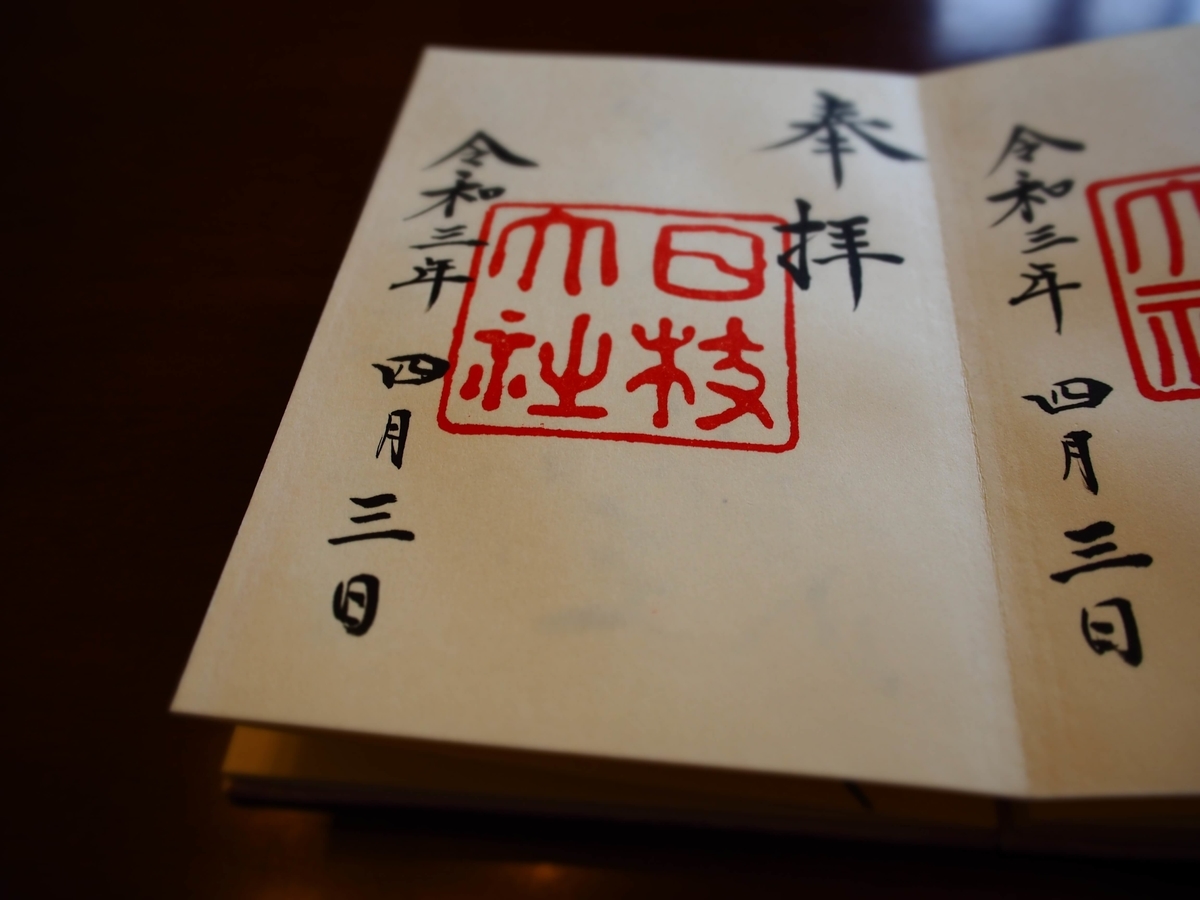 令和三年 四月三日
奉拝
日枝
大社
令和三年 四月三日